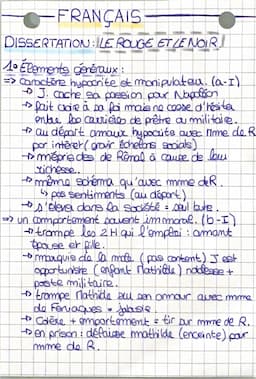 FRANÇAIS
DISSERTATION: LE ROUGE ET LE NOIR
1° Éléments généraux :
=> caractère hypocrite et manipulateur. (a-I)
→ J. cache sa passion pour Napoléon
→ fait croire à sa foi mais ne cesse d'hésiter
entre les carrières de prêtre ou militaire.
→ au départ amour hypocrite avec Mme de R
par intérêt (gravir échelons sociaux)
→ méprise des de Rênal à cause de leur
richesse.
→ même schéma qu'avec mme de R.
↳ pas sentiments (au départ)
→ s'élever dans la société = seul but.
=> un comportement souvent immoral. (b-I)
→ trompe les 2 H qui l'emploi : amant
épouse et fille.
→ marquis de la mole (pas content) J est
opportuniste (enfant Mathilde) noblesse +
poste militaire.
→ trompe Mathilde sur son amour avec mme
de Fervaques = jalousie
→ Colère + emportement = tir sur mme de R.
→ en prison : délaisse mathilde (enceinte) pour
mme de R.